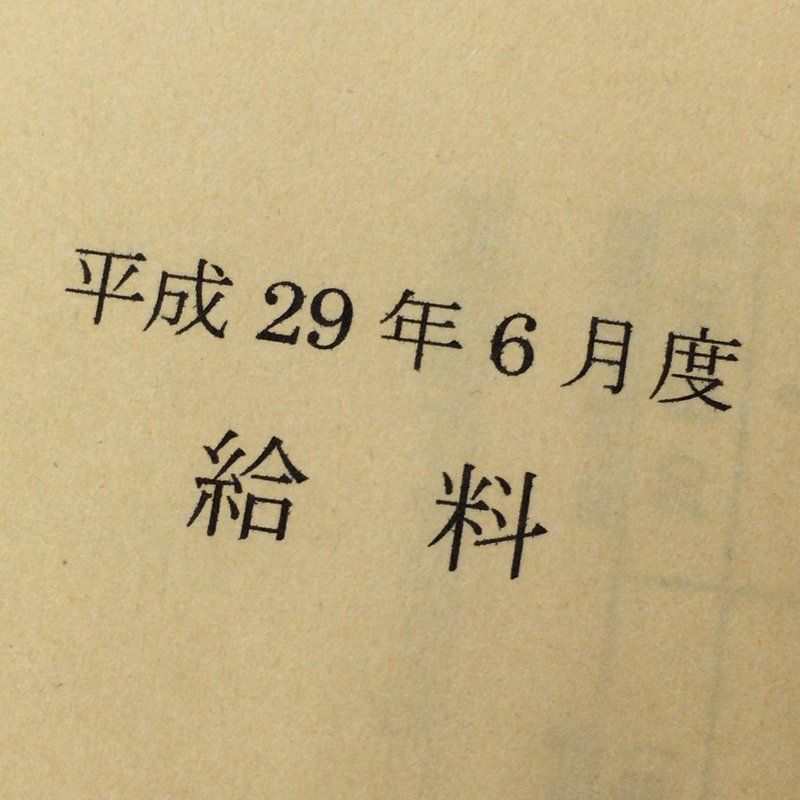 平成 29 年 6 月度
給 料